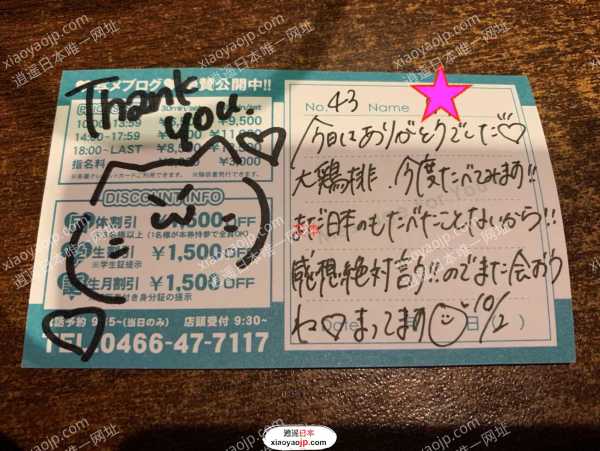 Thank you
公開中!!
10:00-13:59
¥9,500
14:00-17:59
18:00-LAST
指名料
DISCOUNT INFO
体割引
500 OFF
生割引 ¥1,500 OFF
※学生証提示
生月割引 ¥1,500 OFF
付き身分証の提示
(当日のみ) 店頭受付 9:30~
TEL.0466-47-7117
No. 43 Name
今日はありがとうでした♡
大鶏排、今度たべてみます!!
まだ日本のもたべたことないから!!
感想絶対言う!!のでまた会おう
ね♡まってます
Date
10/2
逍遥日本
xiaoyaojp.com
逍遥日本唯一网址
xiaoyaojp.com